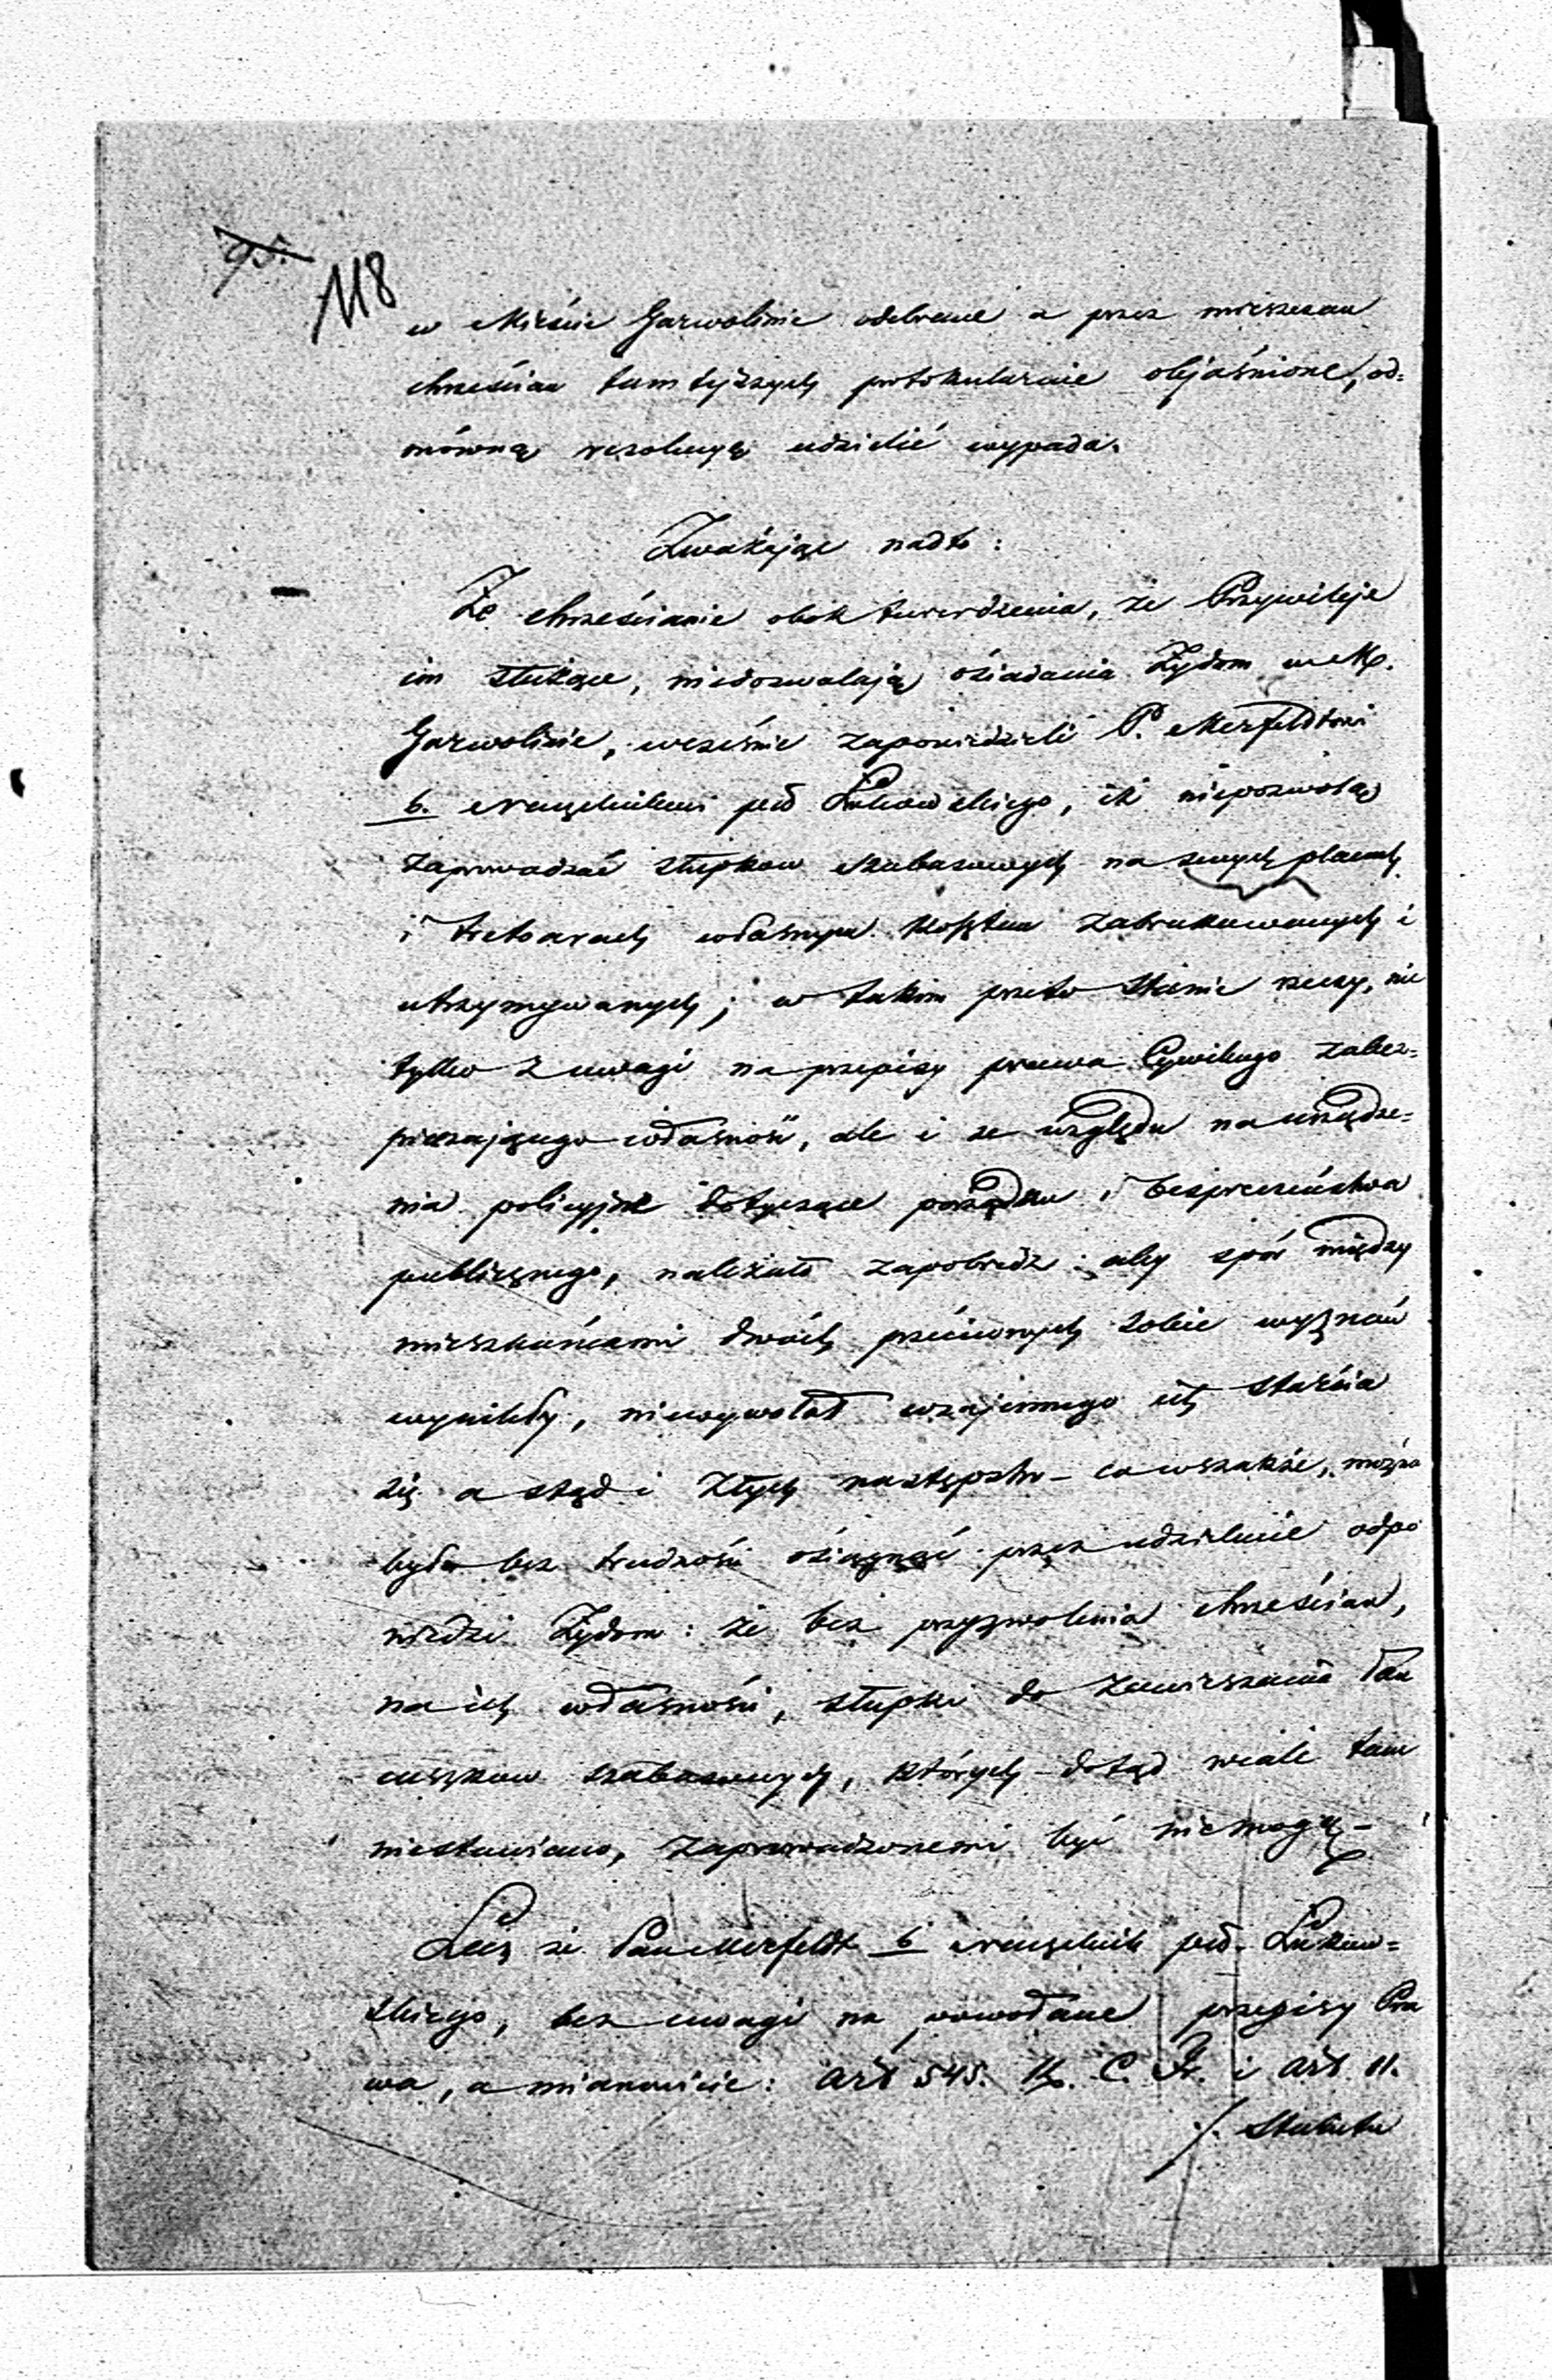 95.
118
w Mieście Garwolinie odebrane a przez mieszczan
chrześcian tamtejszych protokularnie objaśnione, od=
mówną rezolucyą udzielić wypada.
Zważając nadto:
Że chrześcianie obok twierdzenia, że Przywileje
im służące, niedozwalają osiadania Żydom w M.
Garwolinie, wcześnie zapowiedzieli P. Merfeldtowi
b. Naczelnikowi pow Łukowskiego, iż niepozwolą
zaprowadzać słupkow szabasowych na swych placach
i tretoarach własnym kosztem zabrukowanych i
utrzymywanych; w takim przeto stanie rzeczy, nie
tylko z uwagi na przepisy prawa Cywilnego zabez=
pieczającego własność, ale i ze względu na urządze=
nia policyjne dotyczące porządku i bespieczeństwa
publicznego, należało zapobiedz: aby spór między
mieszkańcami dwóch przeciwnych sobie wyznań
wynikły, niewywołał wzajemnego ich starcia
się a stąd i złych następstw – co wszakże, można
było bez trudności osiągnąć przez udzielenie odpo
wiedzi Żydom: że bez przyzwolenia chrześcian,
na ich własności, słupki do zawieszania łań
cuszkow szabasowych, których dotąd wcale tam
niestawiano, zaprowadzonemi być niemogą –
Lecz że Pan Merfeldt b naczelnik pow. Łukow=
skiego, bez uwagi na powołane przepisy Pra
wa, a mianowicie: art 545. K. C. F. i art. 11.
/. Statutu